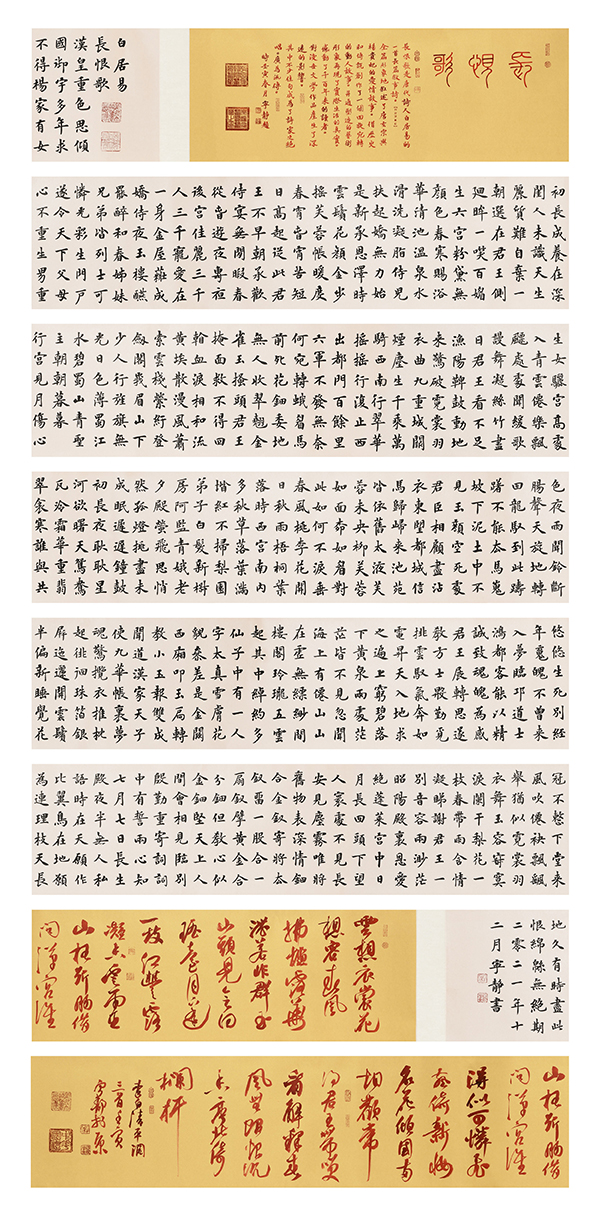 長恨歌
長恨歌是唐代詩人白居易的
一首長篇敘事詩
全篇形象地敘述了唐玄宗與
楊貴妃的愛情故事借歷史
和傳說創作了一個回旋宛轉
的動人故事
白居易
長恨歌
漢皇重色思傾
國御宇多年求
不得楊家有女
初長成養在深
閨人未識天生
麗質難自棄一
朝選在君王側
迴眸一笑百媚
生六宮粉黛無
顏色春寒賜浴
華清池溫泉水
滑洗凝脂侍兒
扶起嬌無力始
是新承恩澤時
雲鬢花顏金步
搖芙蓉帳暖度
春宵春宵苦短
日高起從此君
王不早朝承歡
侍宴無閑暇春
從春遊夜專夜
後宮佳麗三千
人三千寵愛在
一身金屋妝成
嬌侍夜玉樓醼
罷醉和春姊妹
弟兄皆列士可
憐光彩生門戶
遂令天下父母
心不重生男重
生女驪宮高處
入青雲僊樂飄
飄處處聞緩歌
謾舞凝絲竹盡
日君王看不足
漁陽鞞鼓動地
來驚破霓裳羽
衣曲九重城闕
煙塵生千乘萬
騎西南行翠華
搖搖行復止西
出都門百餘里
六軍不發無奈
何宛轉蛾眉馬
前死花鈿委地
無人收翠翹金
雀玉搔頭君王
掩面救不得迴
看血淚相和流
黃埃散漫風蕭
索雲棧縈紆登
劍閣峨眉山下
少人行旌旗無
光日色薄蜀江
水碧蜀山青聖
主朝朝暮暮情
行宮見月傷心
色夜雨聞鈴斷
腸聲天旋地轉
回龍馭到此躊
躇不能去馬嵬
坡下泥土中不
見玉顏空死處
君臣相顧盡沾
衣東望都城信
馬歸歸來池苑
皆依舊太液芙
蓉未央柳芙蓉
如面柳如眉對
此如何不淚垂
春風桃李花開
日秋雨梧桐葉
落時西宮南內
多秋草落葉滿
階紅不掃梨園
弟子白髮新椒
房阿監青娥老
夕殿螢飛思悄
然孤燈挑盡未
成眠遲遲鐘鼓
初長夜耿耿星
河欲曙天鴛鴦
瓦冷霜華重翡
翠衾寒誰與共
悠悠生死別經
年魂魄不曾來
入夢臨邛道士
鴻都客能以精
誠致魂魄為感
君王展轉思遂
教方士殷勤覓
排雲馭氣奔如
電昇天入地求
之遍上窮碧落
下黃泉兩處茫
茫皆不見忽聞
海上有僊山山
在虛無縹緲間
樓閣玲瓏五雲
起其中綽約多
仙子中有一人
字太真雪膚花
貌參差是金闕
西廂叩玉扃轉
教小玉報雙成
聞道漢家天子
使九華帳裏夢
魂驚攬衣推枕
起徘徊珠箔銀
屏迤邐開雲鬢
半偏新睡覺花
冠不整下堂來
風吹僊袂飄飄
舉猶似霓裳羽
衣舞玉容寂寞
淚闌干梨花一
枝春帶雨含情
凝睇謝君王一
別音容兩渺茫
昭陽殿裏恩愛
絕蓬萊宮中日
月長回頭下望
人寰處不見長
安見塵霧唯將
舊物表深情鈿
合金釵寄將去
釵留一股合一
扇釵擘黃金合
分鈿但教心似
金鈿堅天上人
間會相見臨別
殷勤重寄詞詞
中有誓兩心知
七月七日長生
殿夜半無人私
語時在天願作
比翼鳥在地願
為連理枝天長
地久有時盡此
恨綿綿無絕期
二零二一年十
二月寧靜書
雲想衣裳花
想容春風
拂檻露華
濃若非群玉
山頭見會向
瑤臺月下逢
一枝紅艷露
凝香雲雨巫
山枉斷腸借
問漢宮誰
山枉斷腸借
問漢宮誰
得似可憐飛
燕倚新妝
名花傾國兩
相歡常
得君王帶笑
看解釋春
風無限恨沉
香亭北倚
闌杆
李白清平調
三首壬寅